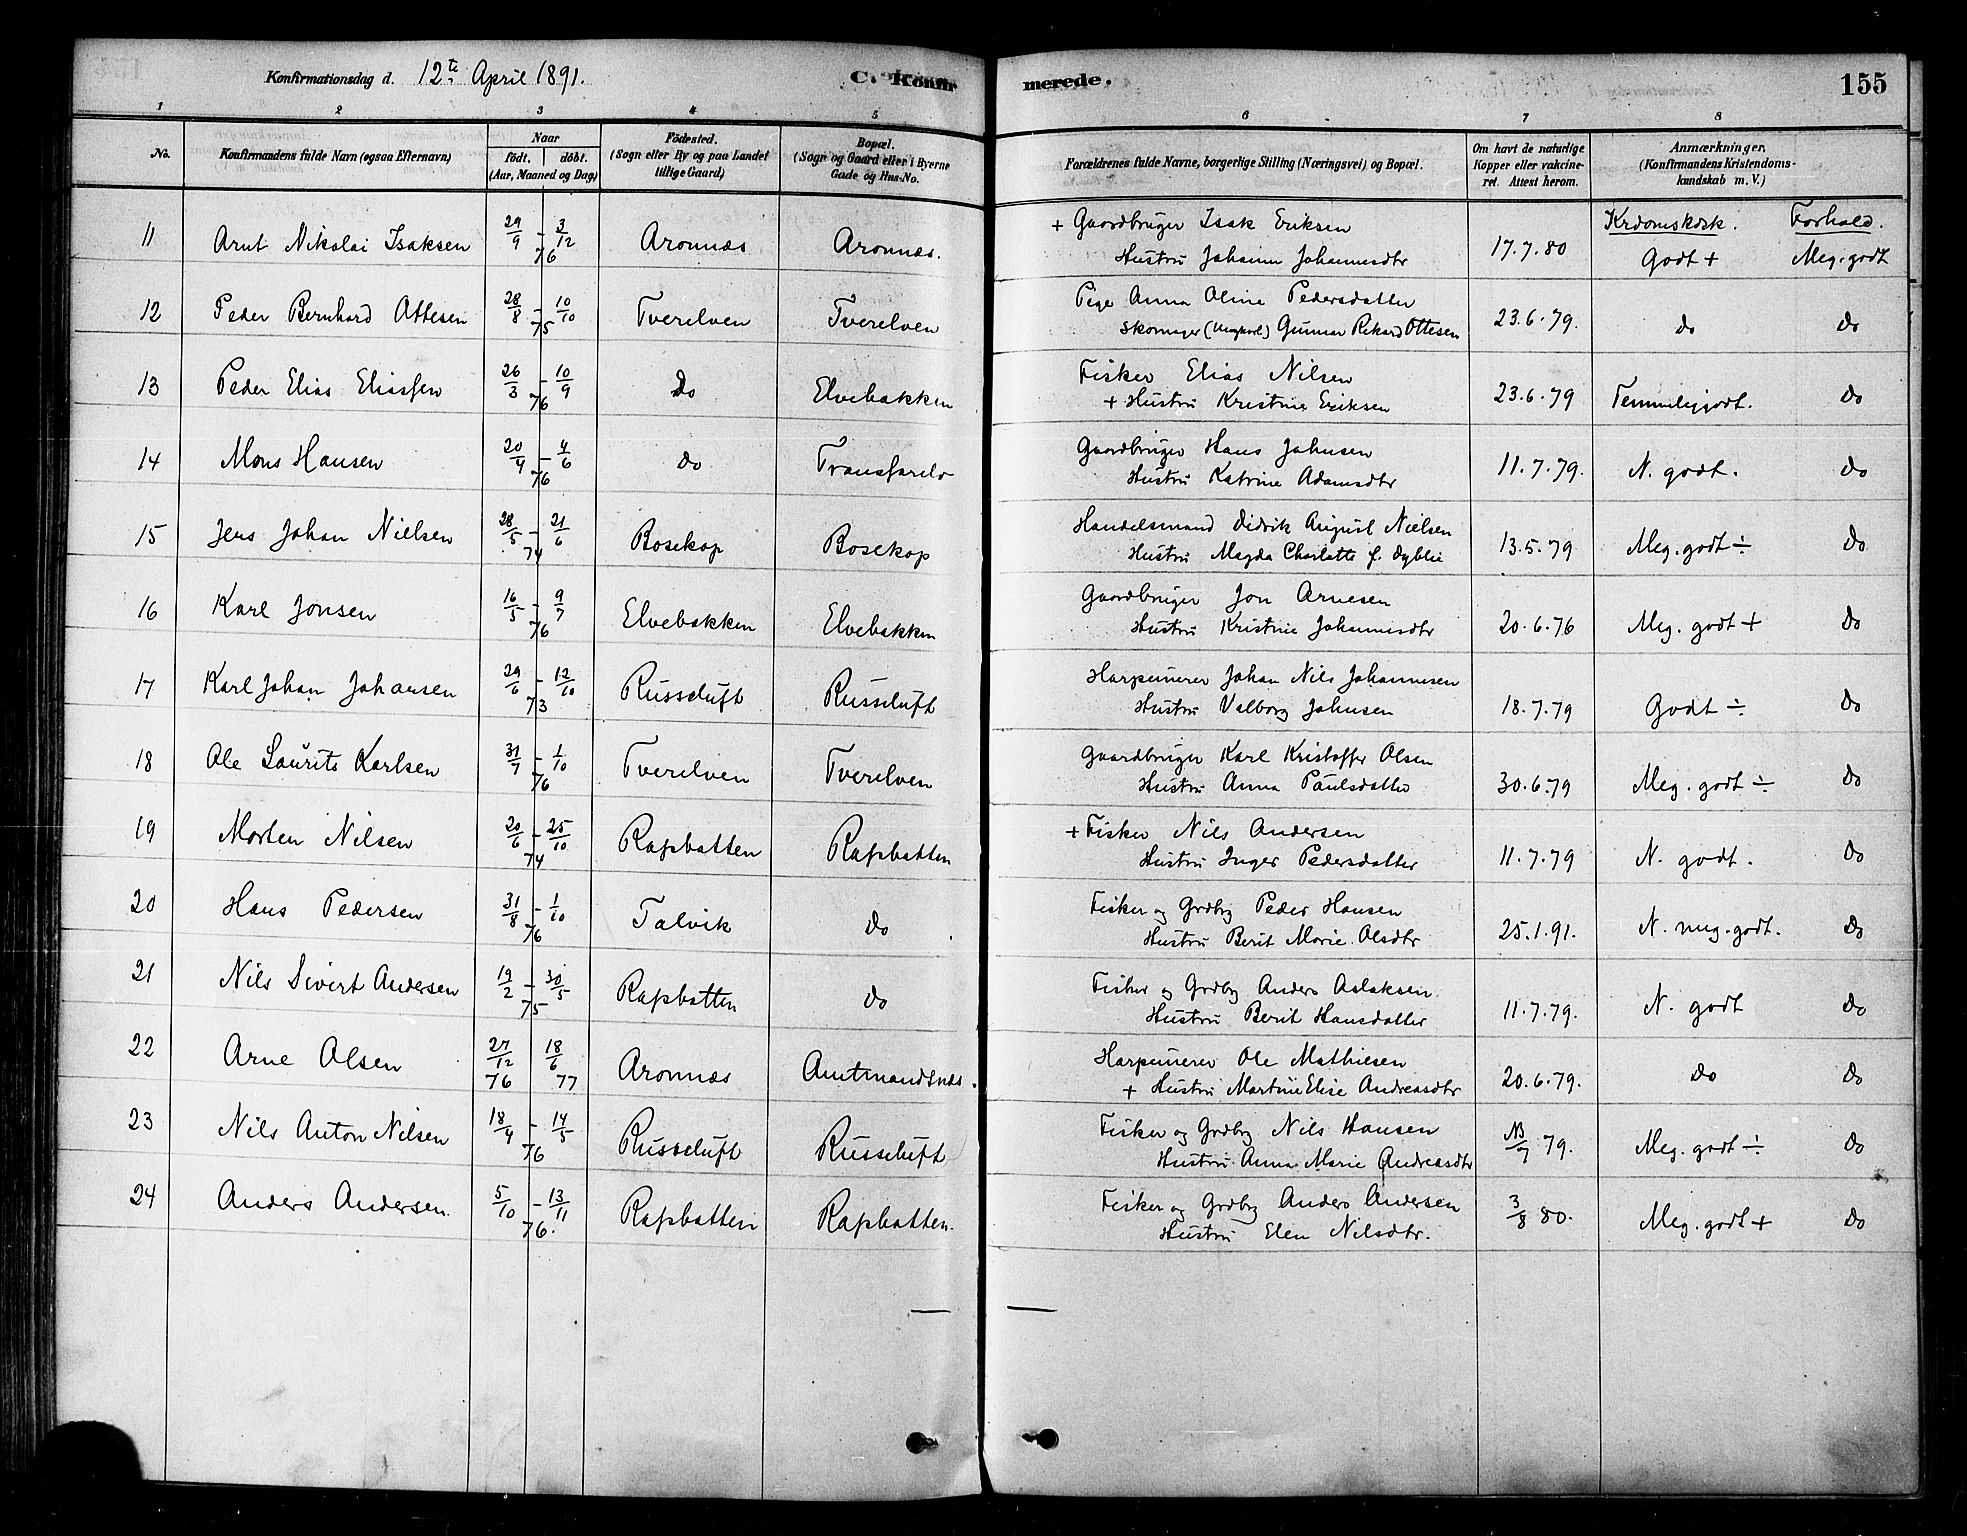 Konfirmationsdag d. 12te April 1891.
C. Konfir
merede.
155
1 2 3 4 5 6 7 8
No.
Konfirmandens fulde Navn (ogsaa Efternavn)
Naar
födt. döbt.
(Aar, Maaned og Dag)
Födested.
(Sogn eller By og paa Landet
tillige Gaard)
Bopæl.
(Sogn og Gaard eller i Byerne
Gade og Hus-No.
Forældrenes fulde Navne, borgerlige Stilling (Næringsvei) og Bopæl.
Om havt de naturlige
Kopper eller vakcine-
ret. Attest herom.
Anmærkninger,
(Konfirmandens Kristendoms-
kundskab m. V.)
Krdomskdsk. Forhold.
11 Arnt Nikolai Isaksen 29/9 - 3/12 76 Aronnæs Aronnæs. + Gaardbruger Isak Eriksen 17.7.80 Godt + Meg. godt
Hustru Johanne Johannesdtr
12 Peder Bernhard Ottesen 28/8 - 10/10 75 Tverelven Tverelven Pige Anna Oline Pedersdatter 23.6.79. do do
Skomager (Ungkarl) Gunnar Rikard Ottesen
13 Peder Elias Eliassen 26/3 - 10/9 76 Do Elvebakken Fisker Elias Nilsen 23.6.79 Temmeligodt. do
+ Hustru Kristine Eriksen
14 Mons Hansen 20/4 - 4/6 76 do Transfarelv Gaardbruger Hans Johnsen 11.7.79. N. godt. do
Hustru Katrine Adamsdtr
15 Jens Johan Nielsen 28/5 - 21/6 74 Bosekop Bosekop Handelsmand Didrik August Nielsen 13.5.79 Meg. godt ÷ do
Hustru Magda Charlotte f. Dyblie
16 Karl Jonsen 16/5 - 9/7 76 Elvebakken Elvebakken Gaardbruger Jon Arnesen 20.6.76 Meg. godt + do
Hustru Kristine Johannesdtr
17 Karl Johan Johansen 29/6 - 12/10 73 Russeluft Russeluft Harpunerer Johan Nils Johannesen 18.7.79 Godt ÷ do
Hustru Valborg Johnsen
18 Ole Laurits Karlsen 31/7 - 1/10 76 Tverelven Tverelven Gaardbruger Karl Kristoffer Olsen 30.6.79 Meg. godt ÷ do
Hustru Anna Paulsdatter
19 Morten Nilsen 20/6 - 25/10 74 Rafsbotten Rafsbotten + Fisker Nils Andersen 11.7.79 N. godt. do
Hustru Inger Pedersdatter
20 Hans Pedersen 31/8 - 1/10 76 Talvik do Fisker og Grdbrg Peder Hansen 25.1.91. N. meg. godt. do
Hustru Berit Marie Olsdtr
21 Nils Sivert Andersen 19/2 - 30/5 75 Rafsbotten do Fisker og Grdbrg Anders Aslaksen 11.7.79. N. godt do
Hustru Berit Hansdatter
22 Arne Olsen 27/12 76 18/6 77 Aronnæs Amtmandsnæs. Harpunerer Ole Mathiesen 20.6.79. do do
+ Hustru Martine Elise Andreasdtr
23 Nils Anton Nilsen 18/4 - 14/5 76 Russeluft Russeluft Fisker og Grdbrg Nils Hansen 79. Meg. godt ÷ do
Hustru Anna Marie Andreasdtr
24 Anders Andersen. 5/10 - 13/11 76. Rafsbotten Rafsbotten. Fisker og Grdbrg Anders Andersen 3/8 80. Meg. godt + do
Hustru Elen Nilsdtr.